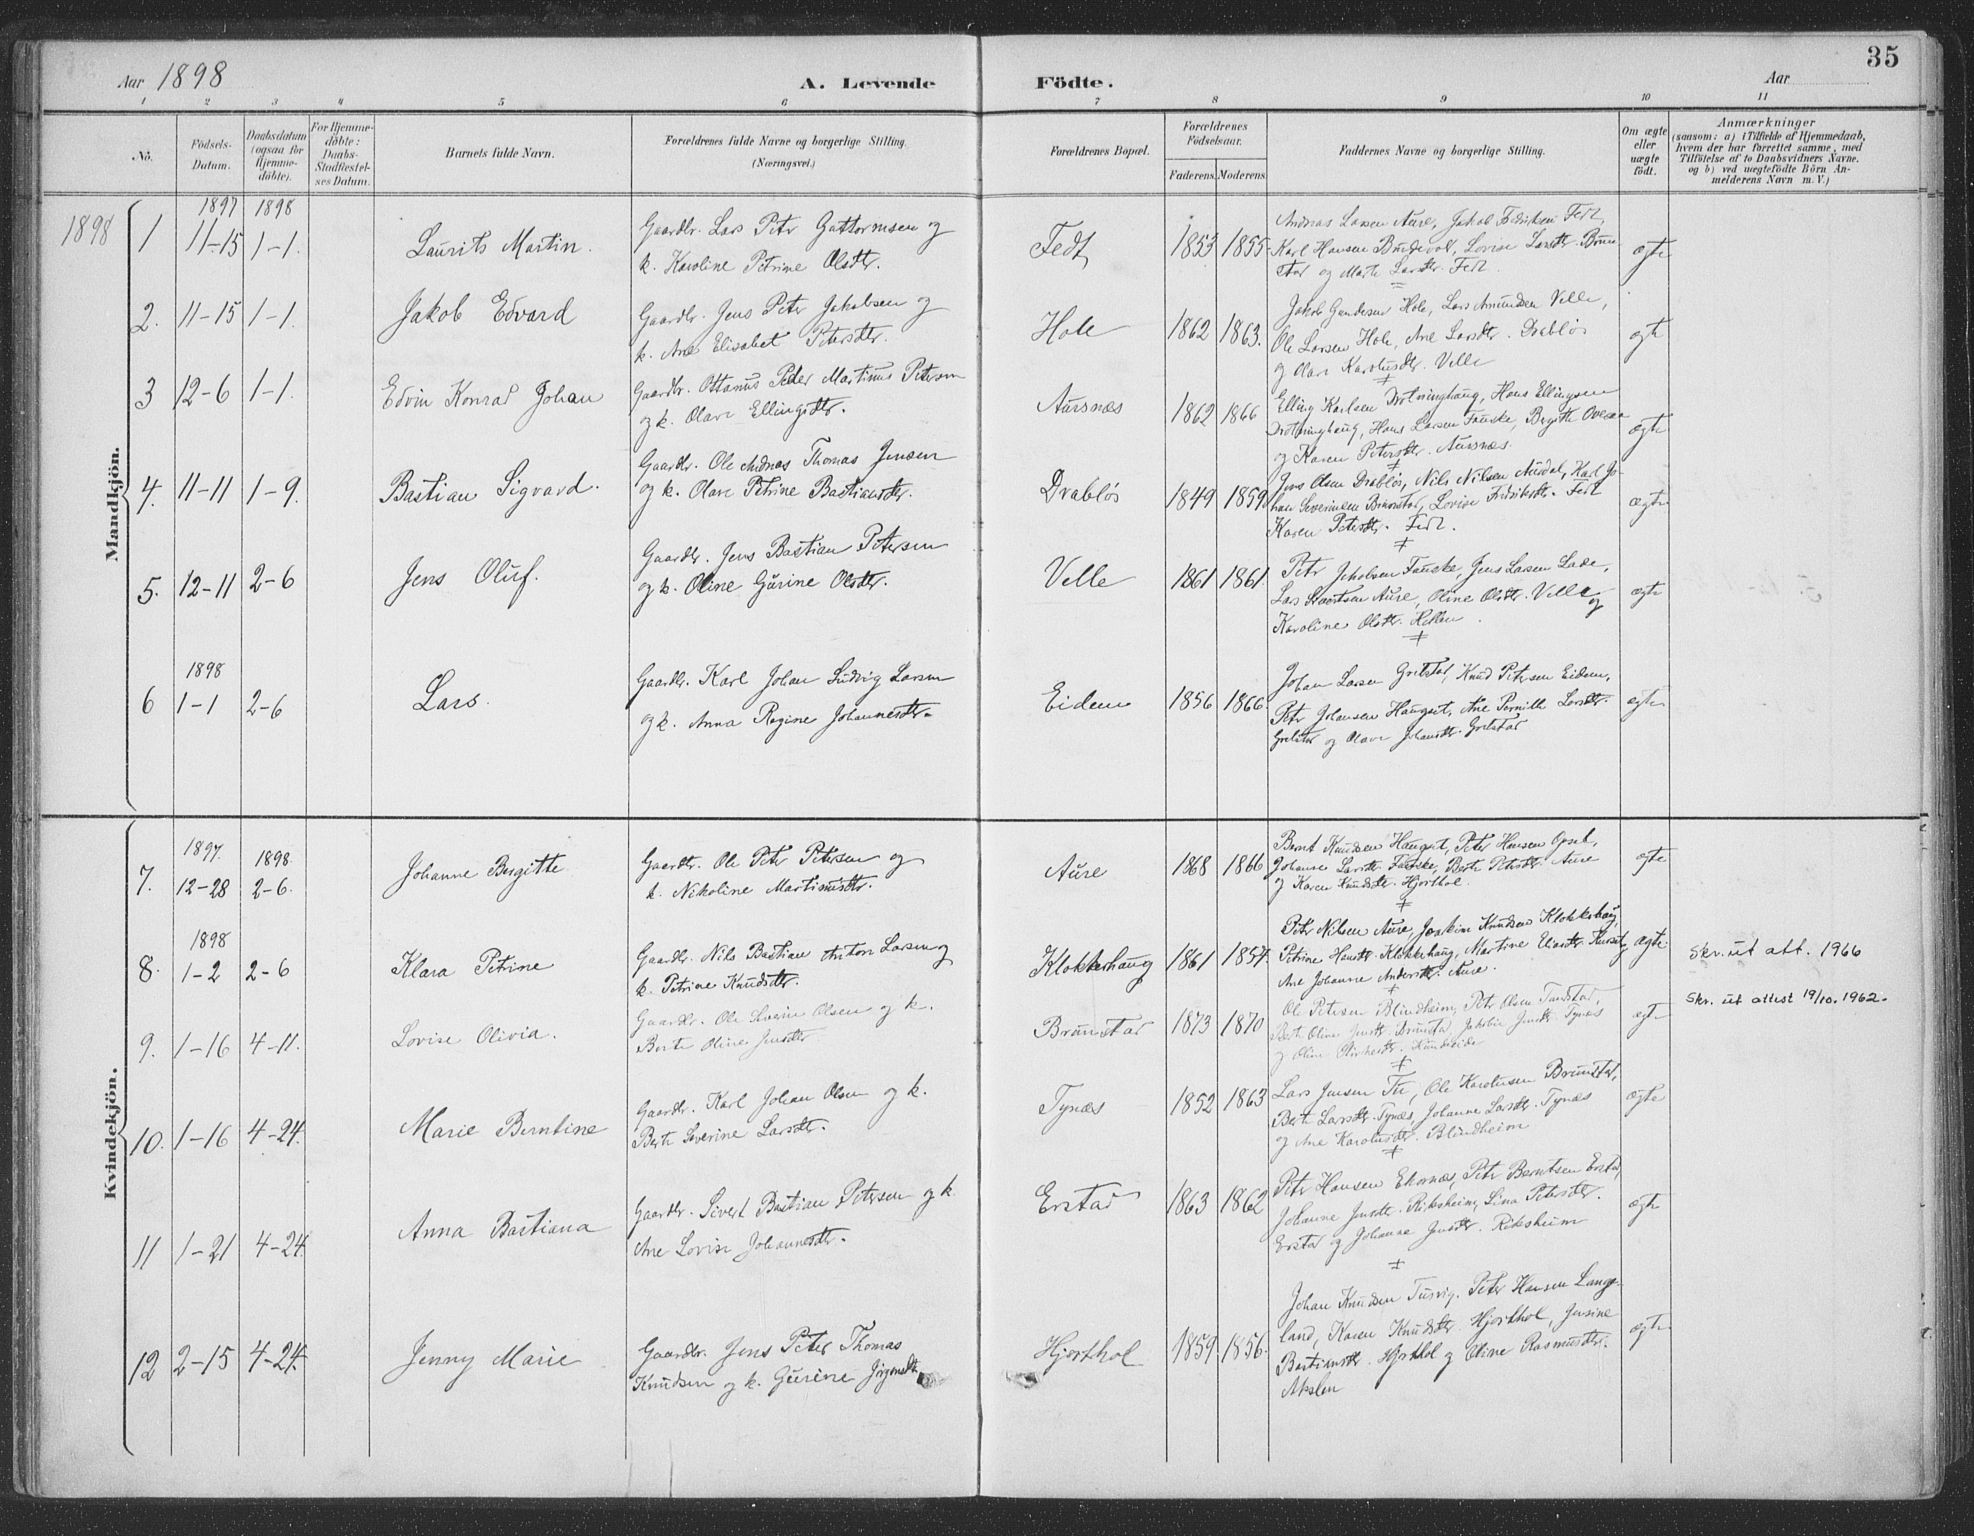 35
Aar 1898 A. Levende Födte. Aar
1 2 3 4 5 6 7 8 9 10 11
No. Födsels-Datum. Daabsdatum (ogsaa for Hjemme-döbte). For Hjemme-döbte: Daabs-Stadfæstelses Datum. Barnets fulde Navn. Forældrenes fulde Navne og borgerlige Stilling. (Næringsvei.) Forældrenes Bopæl. Forældrenes Födselsaar. Faderens. Moderens. Faddernes Navne og borgerlige Stilling. Om ægte eller uægte födt. Anmærkninger (saasom: a) i Tilfælde af Hjemmedaab, hvem der har forrettet samme, med Tilföielse af to Daabsvidners Navne. og b) ved uægtefödte Börn Anmelderens Navn m. V.)
Mandkjön.
1898 1897 1898
1 11-15 1-1. Laurits Martin. Gaardbr. Lars Petr Guttormsen og
k. Karoline Petrine Olsdtr. Fedt 1853 1855 Andreas Larsen Aure, Jakob Fedriksen Fedt,
Karl Hansen Burdevol, Lovise Larsdtr. Brun-
stad og Marte Larsdtr. Fedt. ægte
2. 11-15 1-1. Jakob Edvard Gaardbr. Jens Peter Jakobsen og
k. Ane Elisabet Petersdtr. Hole 1862 1863. Jakob Gundersen Hole, Lars Amundsen Velle,
Ole Larsen Hole, Ane Larsdtr. Drabløs
og Olave Karolusdtr. Velle ægte
3 12-6 1-1. Edvin Konrad Johan Gaardbr. Ottanus Peder Martinus Petersen
og k. Olave Ellingsdtr. Aursnæs 1862 1866 Elling Karlsen Drotninghaug, Hans Ellingsen
Drotninghaug, Hans Larsen Fauske, Bergitte
og Karen Petersdtr. Aursnæs. ægte
4. 11-11 1-9. Bastian Sigvard. Gaardbr. Ole Andreas Thomas Jensen
og k. Olave Petrine Bastiansdtr. Drabløs 1849 1859 Jens Olsen Drabløs, Nils Nilsen Aurdal, Karl Jo-
han Severinsen Brunstad, Lovise Fedriksdtr. Fedt
Karen Petersdtr. Fedt. ægte
5. 12-11 2-6 Jens Oluf. Gaardbr. Jens Bastian Petersen
og k. Oline Gurine Olsdtr. Velle 1861 1861 Petr Jakobsen Fauske, Jens Larsen Lade,
Lars Aure, Oline Olsdtr. Velle og
Karoline Olsdtr. Hellen. ægte
1898
6 1-1 2-6 Lars. Gaardbr. Karl Johan Ludvig Larsen
og k. Anna Regine Johannesdtr. Eidem 1856 1866 Johan Larsen Gretstad, Knud Petersen Eidem,
Petr Johansen Haugset, Ane Pernille Larsdtr.
Gretstad og Olave Johansdtr. Gretstad ægte
Kvindekjön.
1897. 1898.
7. 12-28 2-6. Johanne Bergitte Gaardbr. Ole Petr Petersen og
k. Nikoline Martinusdtr. Aure 1868 1866 Bernt Knudsen Haugset, Peter Hansen Opsal,
Johanne Larsdtr. Fauske, Berte Petersdtr. Aure
og Karen Knudsdtr. Hjorthol. ægte
1898
8. 1-2 2-6 Klara Petrine Gaardbr. Nils Bastian Anton Larsen og
k. Petrine Knudsdtr. Klokkerhaug 1861 1857. Petr Nilsen Aure, Joakim Knudsen Klokkerhaug,
Petrine Hansdtr. Klokkerhaug, Martine Eliasdtr.
Ane Johanne Andersdtr. Aure. ægte Skr. ut att. 1966
9. 1-16 4-11. Lovise Olivia. Gaardbr. Ole Severin Olsen og k.
Berte Oline Jensdtr. Brunstad 1873 1870 Ole Petersen Blindheim, Petr Olsen Tandstad,
Berte Oline Jensdtr. Brunstad, Jakobie Jensdtr. Tynæs
og Oline ægte Skr. ut attest 19/10. 1962.
10. 1-16 4-24. Marie Berntine Gaardbr. Karl Johan Olsen og k.
Berte Severine Larsdtr. Tynæs 1852 1863 Lars Jensen Tu, Ole Karolusen Brunstad,
Berte Larsdtr. Tynæs, Johanne Larsdtr. Tynæs
og Ane Karolusdtr. Blindheim ægte
11 1-21 4-24. Anna Bastiana Gaardbr. Sivert Bastian Petersen og k.
Ane Lovise Johannesdtr. Erstad 1863 1862 Petr Hansen Ekornæs, Petr Berntsen Erstad,
Johanne Jensdtr. Riksheim, Lina Petersdtr.
Erstad og Johanne Jensdtr. Riksheim ægte
12 2-15 4-24. Jenny Marie Gaardbr. Jens Peter Thomas
Knudsen og k. Gurine Jørgensdtr. Hjorthol 1859 1856. Johan Knudsen Tusvig, Peter Hansen Lange-
land, Karen Knudsdtr. Hjorthol, Jensine
Bastiansdtr. Hjorthol og Oline Rasmusdtr.
Akslen ægte